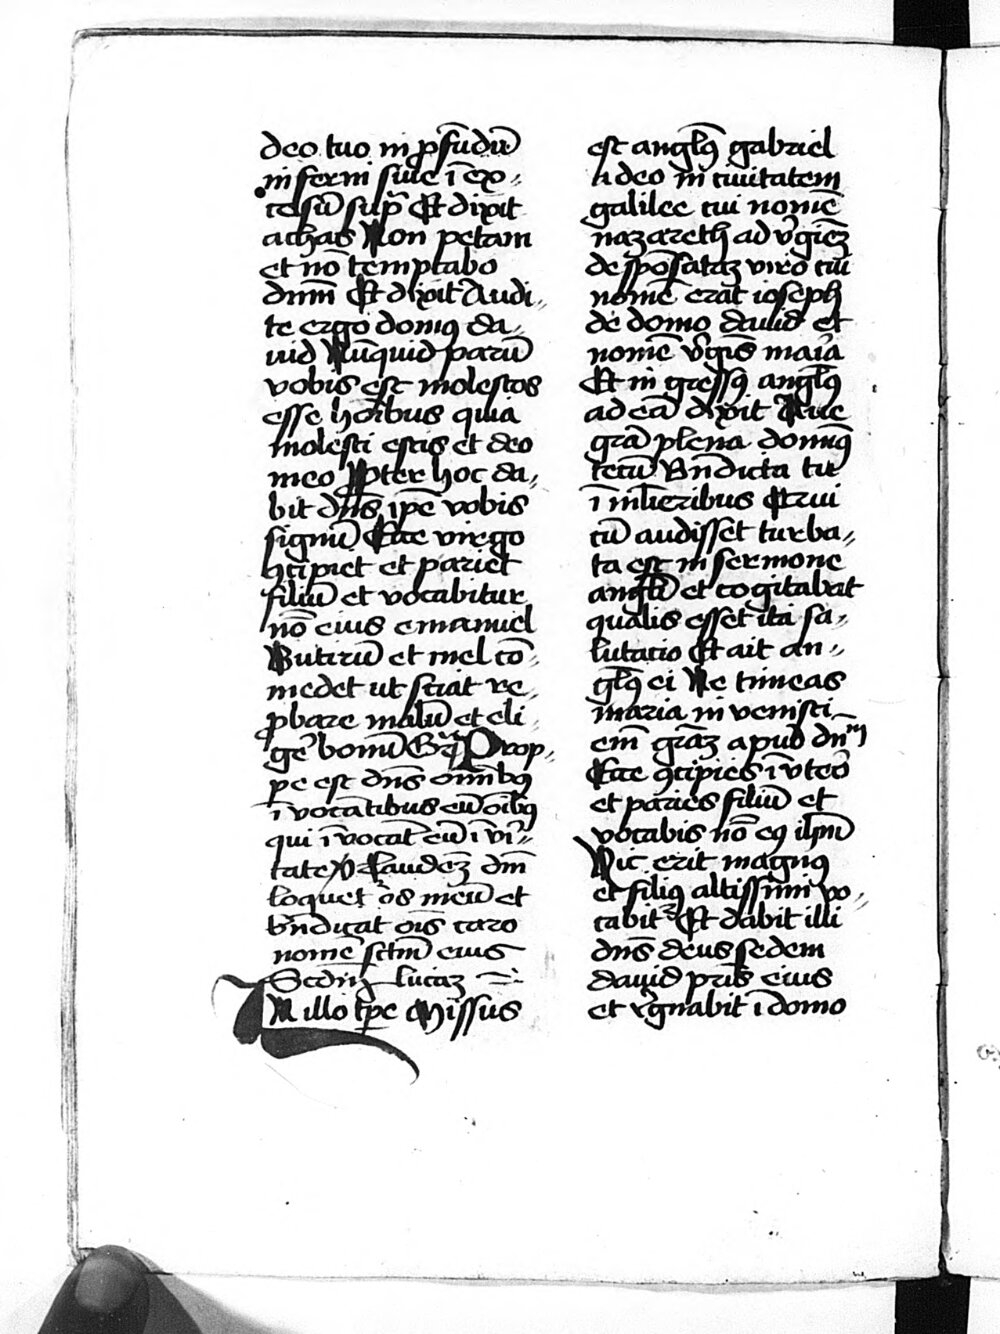 deo tuo in ꝓfūdū
inferni siue ī ex⸗
celsū suꝑ Et dixit
achas Non petam
et nō temptabo
dnm̄ Et dixit Audi⸗
te ergo domꝰ da⸗
uid Nūquid parū
vobis est molestos
esse hōibus quia
molesti estis et deo
meo Ꝓpter hoc da⸗
bit dn̄s ip̄e vobis
signū Ecce virgo
ꝯcipiet et pariet
filiū et vocabitur
nō eius emanuel
Butirū et mel cō⸗
medet ut sciat re⸗
ꝓbare malū et eli⸗
gē bonū Gr̄ Prop⸗
pe est dn̄s om̄ibꝰ
ī vocātibus eū oībꝰ
qui ī vocāt eū ī vī⸗
tate ꝟ Laudeꝫ dn̄i
loquet̄ os meū et
bn̄dicat oīs caro
nomē sctm̄ eius
Scdm̄ lucaꝫ
In illo tꝑe Missus
est anglꝰ gabriel
a deo in ciuitatem
galilee cui nomē
nazareth ad v̄gīeꝫ
despōsataꝫ viro cui
nomē erat ioseph
de domo dauid et
nomē v̄gīs maīa
Et in gressꝰ anglꝰ
ad eā dixit Aue
grā plena dominꝰ
tecū Bn̄dicta tu
ī mlieribus Q̄ cui
cū audisset turba⸗
ta est in sermone
angli et cogitabat
qualis esset ista sa⸗
lutacio Et ait an⸗
glꝰ ei Ne timeas
maria in venisti
em̄ grāꝫ apud dn̄m
Ecce ꝯcipies ī vteō
et paries filiū et
vocabis nō eꝰ ih̄m
Hic erit magnꝰ
et filiꝰ altissimi vo⸗
cabit᷑ Et dabit illi
dn̄s deus sedem
dauid pr̄is eius
et regnabit ī domo